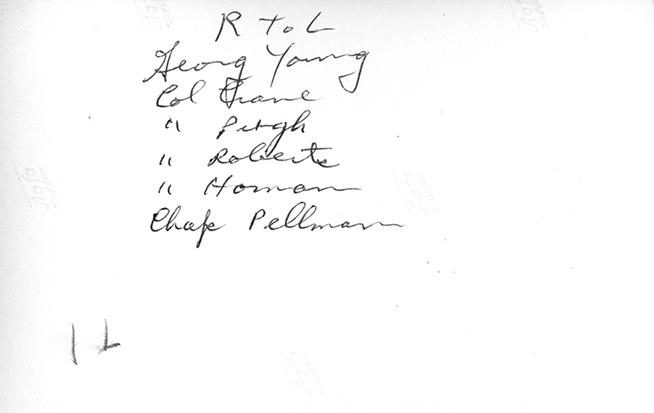 R to L
Georg Young
Col Crane
" Pugh
" Roberts
" Homan
Chap Pellman
1 L